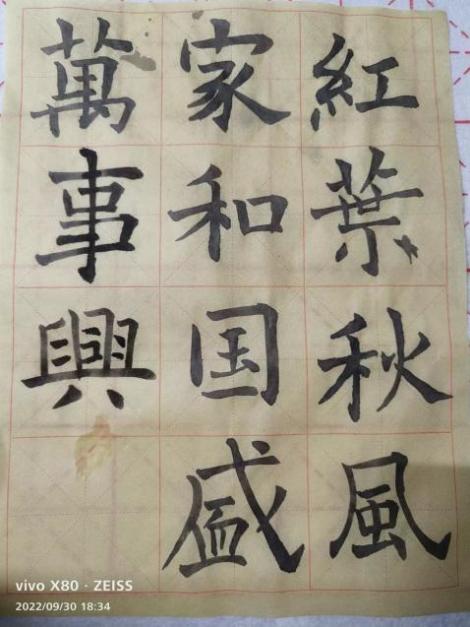 紅葉秋風
家和国盛
萬事興
vivo X80 · ZEISS
2022/09/30 18:34